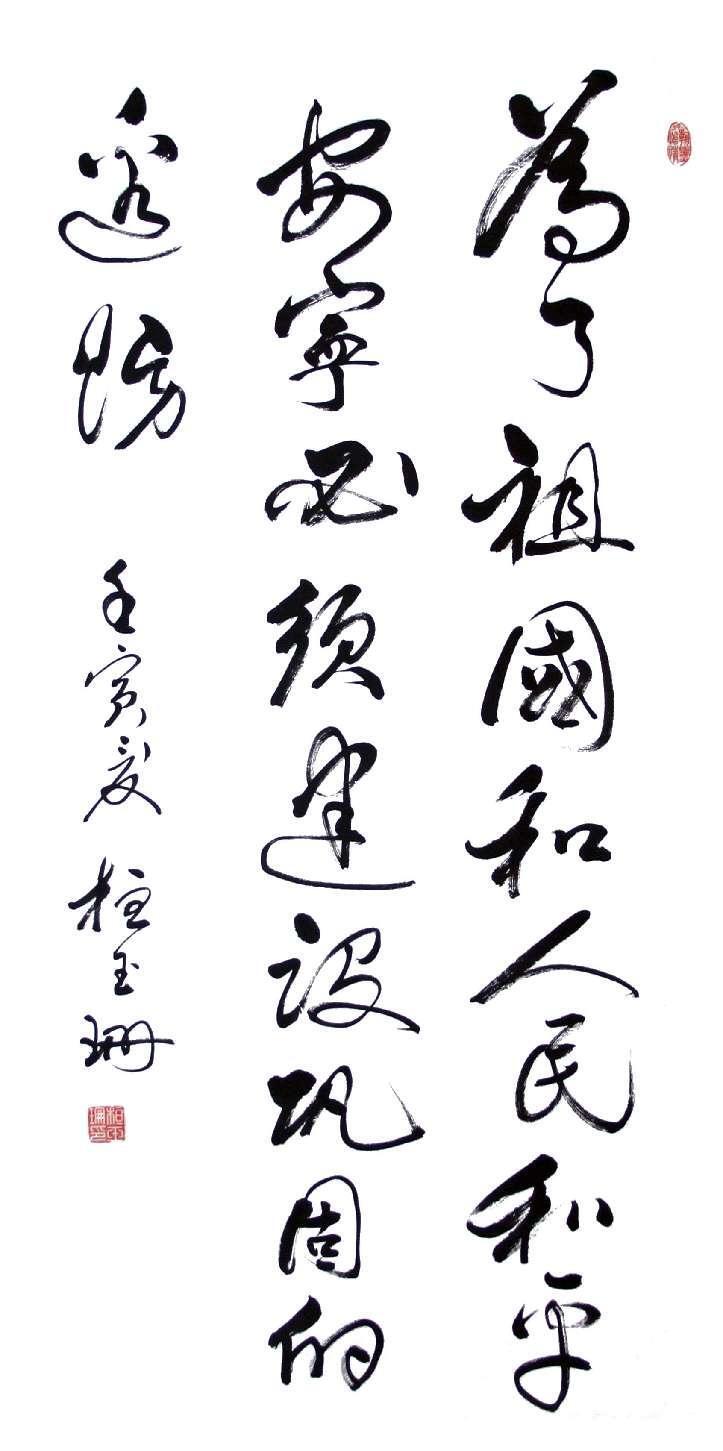 為了祖國和人民和平
安寧必須建設巩固的
邊防
壬寅夏 桓玉珊